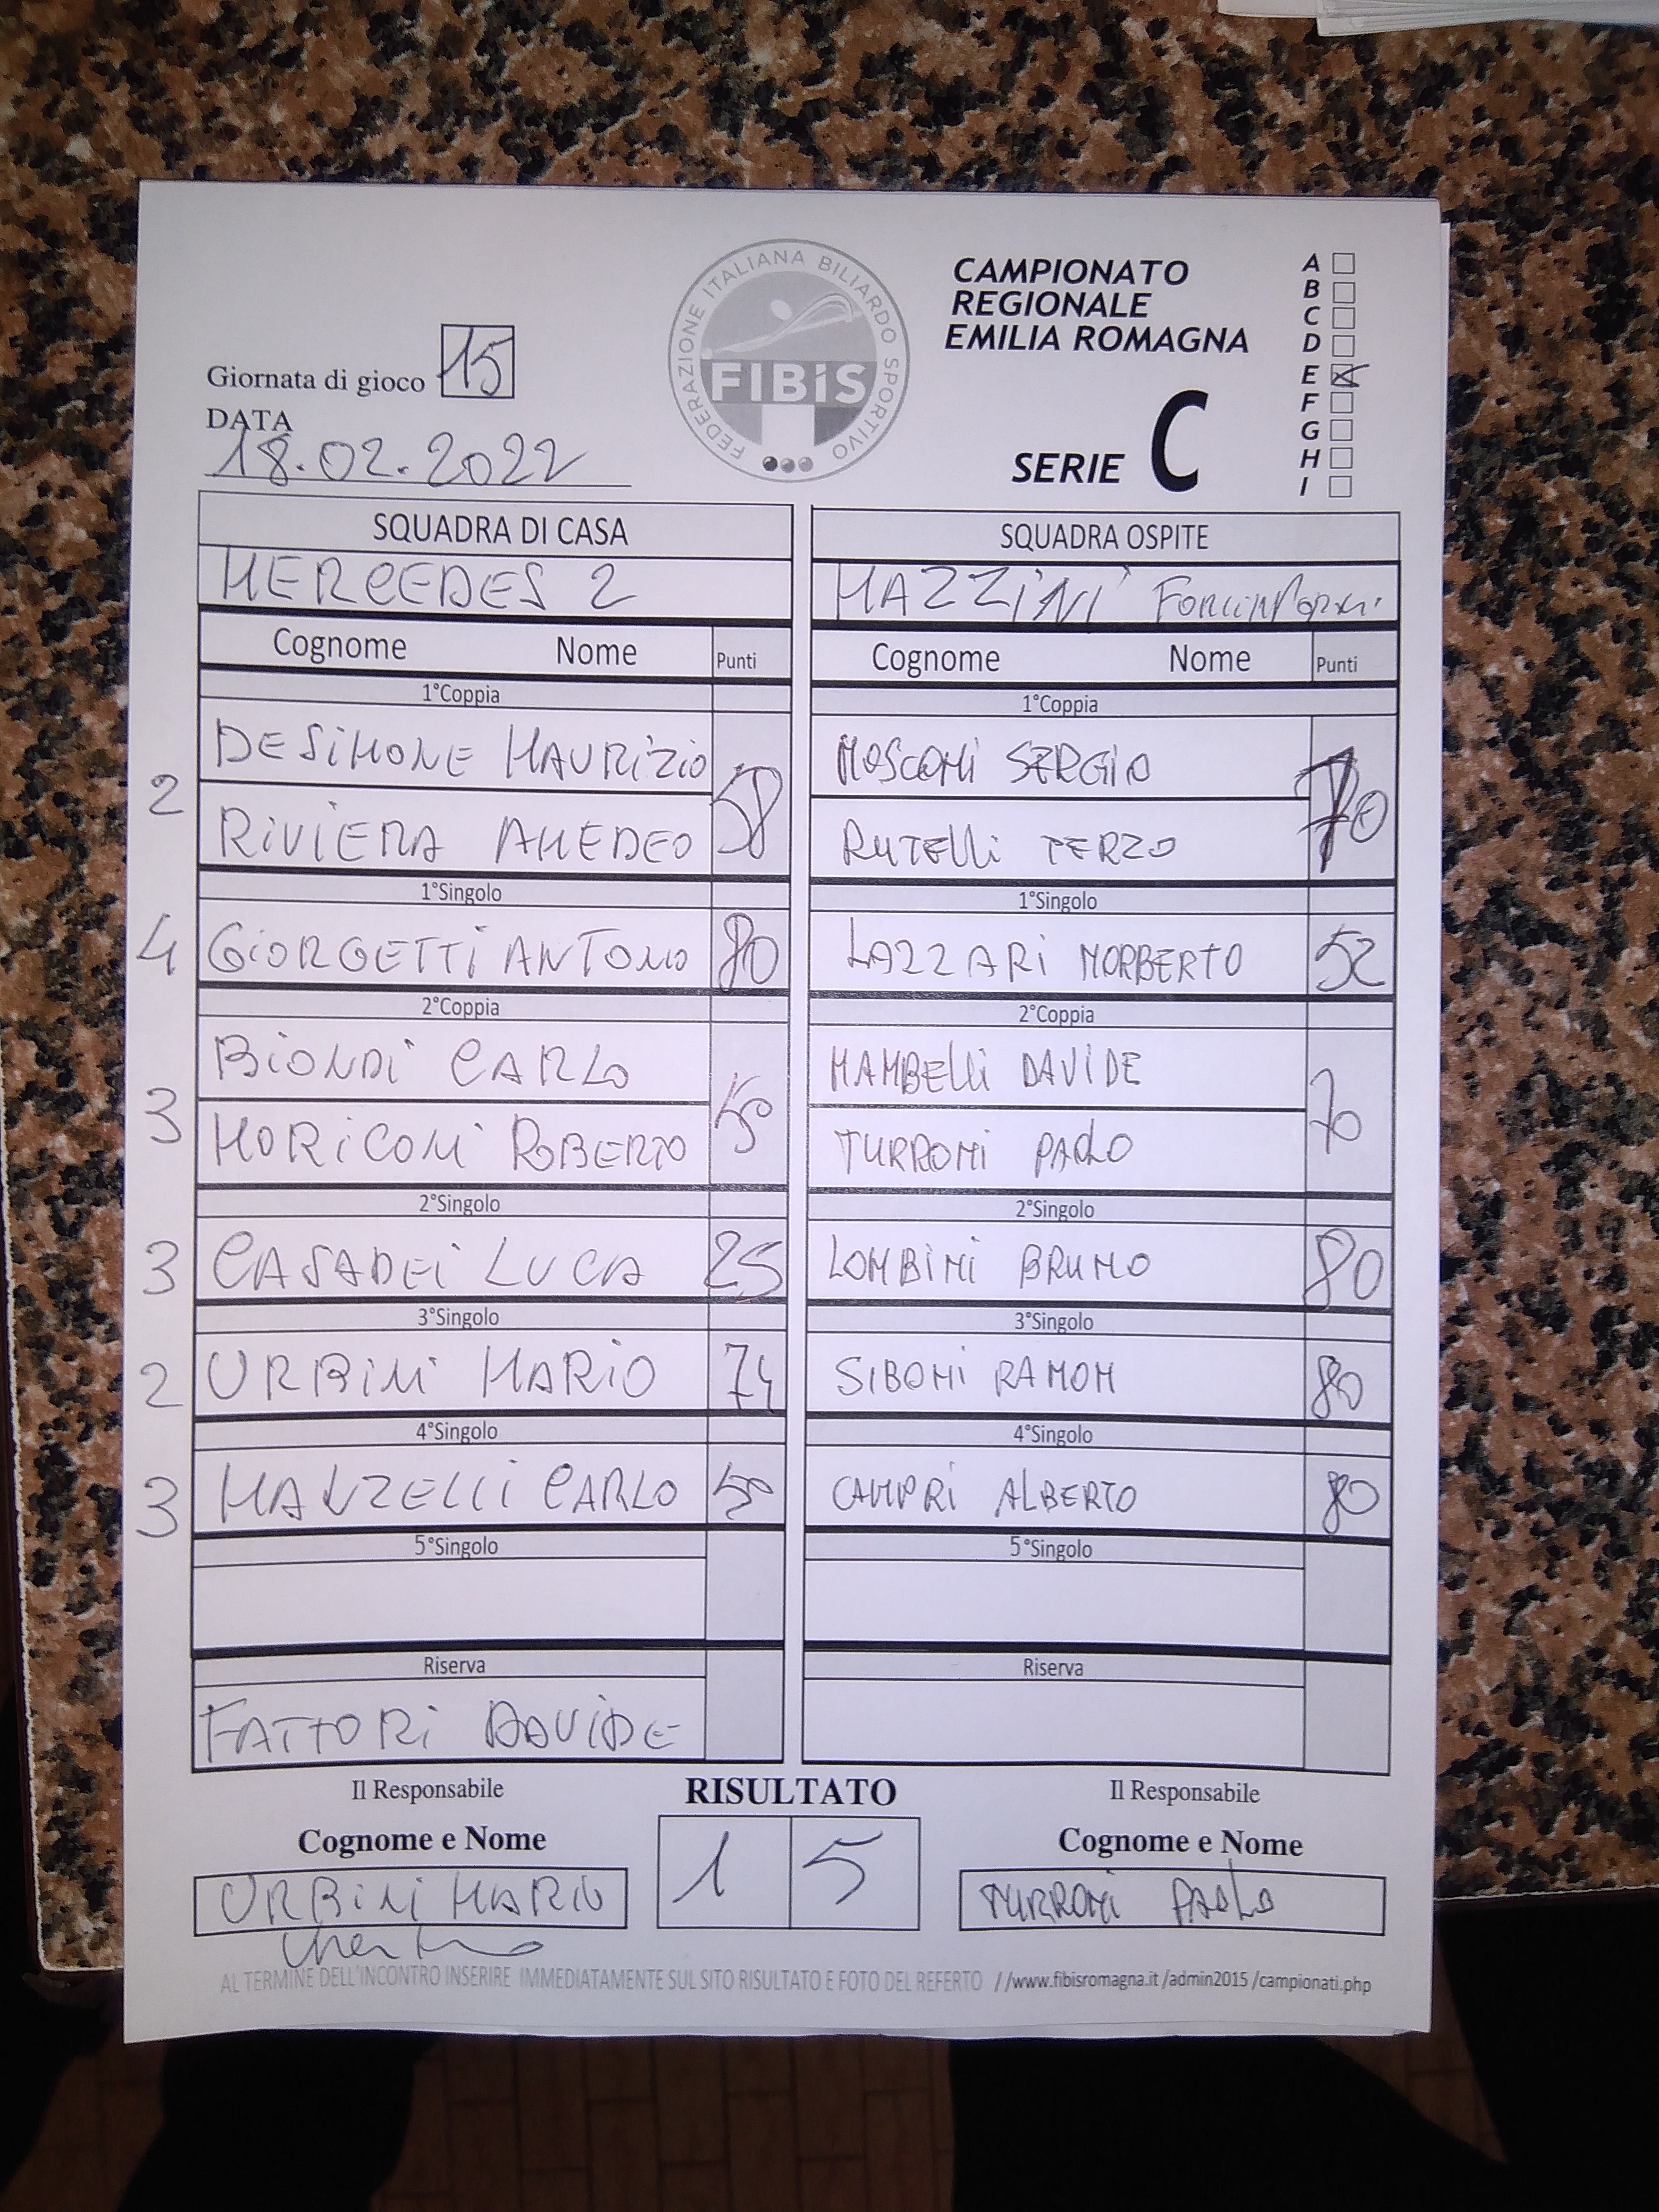 CAMPIONATO
REGIONALE
EMILIA ROMAGNA
SERIE C
A
B
C
D
E
F
G
H
I
FEDERAZIONE ITALIANA BILIARDO SPORTIVO
FIBiS
Giornata di gioco 15
DATA
18.02.2022
SQUADRA DI CASA
MERCEDES 2
Cognome Nome Punti
1°Coppia
DESIMONE MAURIZIO
2 58
RIVIERA AMEDEO
1°Singolo
4 GIORGETTI ANTONIO 80
2°Coppia
BIONDI CARLO
3 50
MORICONI ROBERTO
2°Singolo
3 CASADEI LUCA 25
3°Singolo
2 URBINI MARIO 74
4°Singolo
3 MANZELLI CARLO 50
5°Singolo
Riserva
FATTORI DAVIDE
SQUADRA OSPITE
MAZZINI
Cognome Nome Punti
1°Coppia
MOSCONI SERGIO
70
RUTELLI TERZO
1°Singolo
LAZZARI NORBERTO 52
2°Coppia
MAMBELLI DAVIDE
70
TURRONI PAOLO
2°Singolo
LOMBINI BRUNO 80
3°Singolo
SIBONI RAMON 80
4°Singolo
CAMPRI ALBERTO 80
5°Singolo
Riserva
Il Responsabile
Cognome e Nome
URBINI MARIO
RISULTATO
1 5
Il Responsabile
Cognome e Nome
TURRONI PAOLO
AL TERMINE DELL'INCONTRO INSERIRE IMMEDIATAMENTE SUL SITO RISULTATO E FOTO DEL REFERTO //www.fibisromagna.it /admin2015 /campionati.php